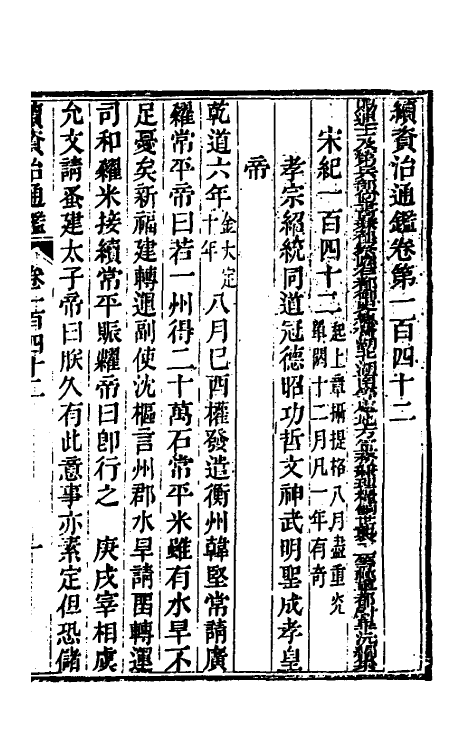 續資治通鑑卷第一百四十二
宋紀一百四十二起上章攝提格八月盡重光單閼十二月凡一年有奇
孝宗紹統同道冠德昭功哲文神武明聖成孝皇
帝
乾道六年金大定十年八月己酉權發遣衡州韓堅常請廣
糴常平帝曰若一州得二十萬石常平米雖有水旱不
足憂矣新福建轉運副使沈樞言州郡水旱請留轉運
司和糴米接續常平賑糶帝曰卽行之 庚戌宰相虞
允文請蚤建太子帝曰朕久有此意事亦素定但恐儲
續資治通鑑 卷一百四十二 一